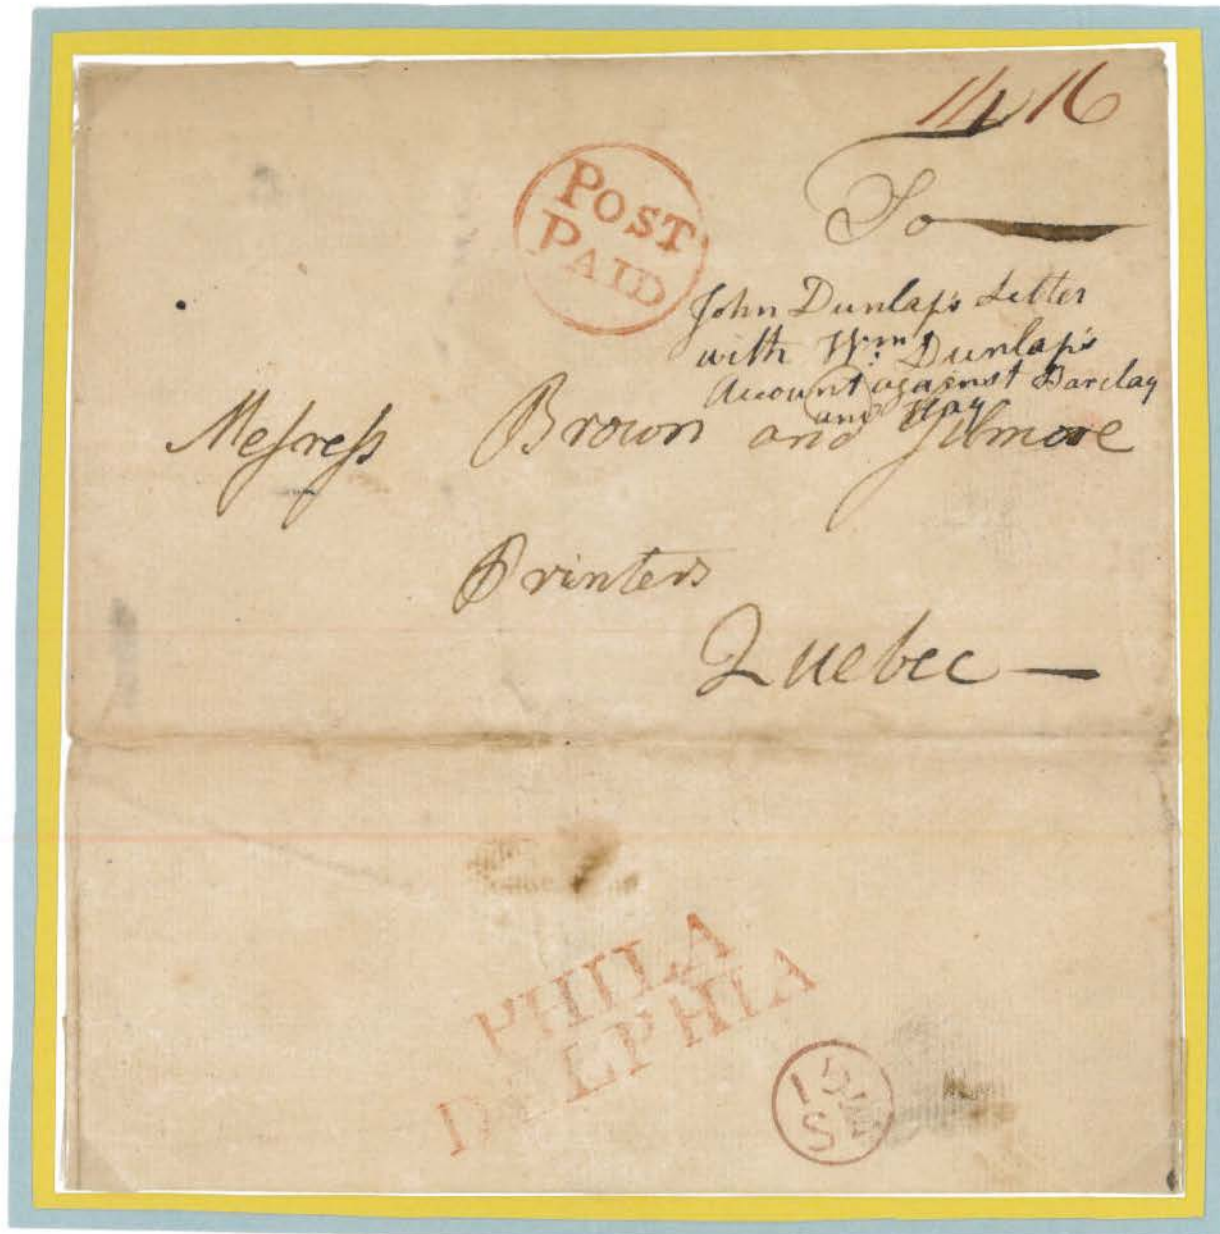 14 16
POST
PAID
To
John Dunlap's Letter
with Wm. Dunlap's
Account against Barclay
and Hay
Meſreſs Brown and Gilmore
Printers
Quebec —
PHILA
DELPHIA